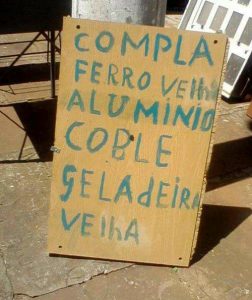 COMPLA
FERRO VELhO
ALUMÍNIO
COBLE
GELADEiRA
VELhA